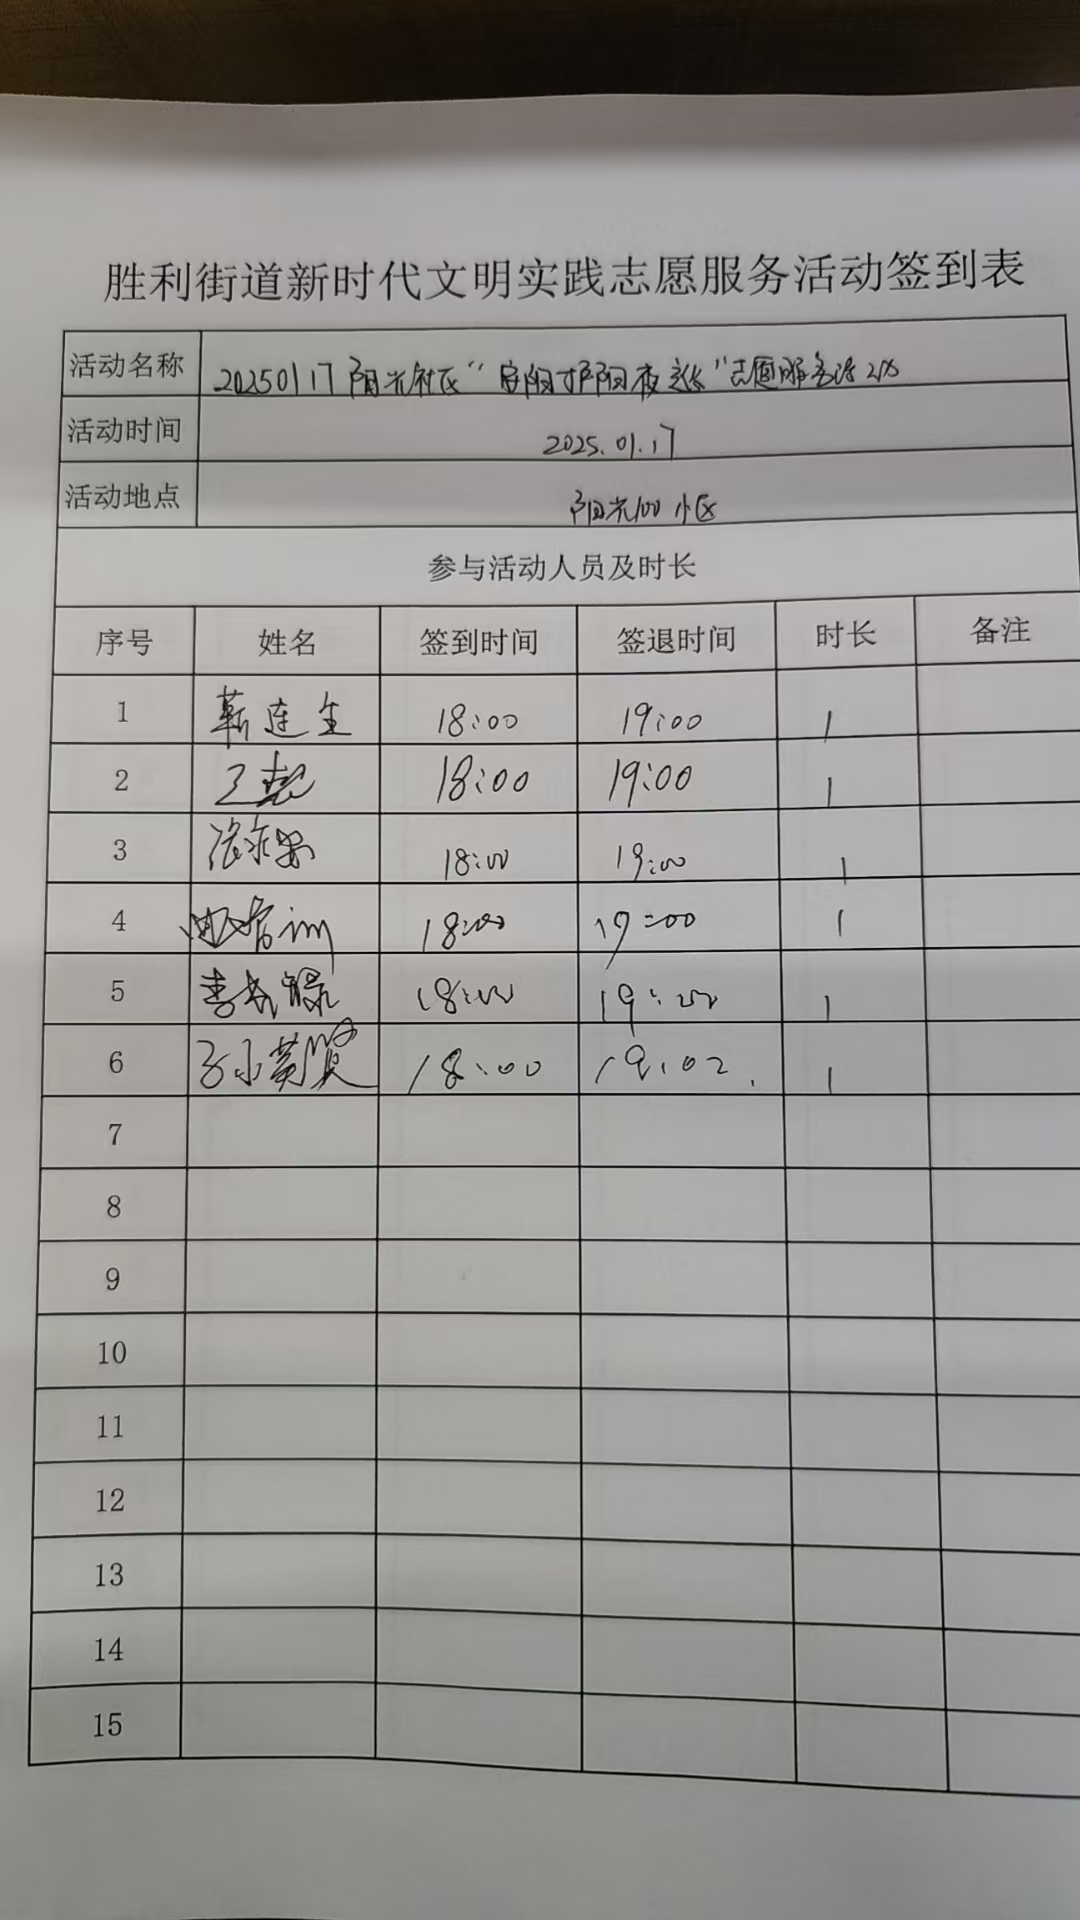 胜利街道新时代文明实践志愿服务活动签到表
活动名称 20250117 阳光社区“ 阳夜 ”志愿服务活动
活动时间 2025.01.17
活动地点 阳光100 小区
参与活动人员及时长
序号 姓名 签到时间 签退时间 时长 备注
1 靳连生 18:00 19:00 1
2 18:00 19:00 1
3 18:00 19:00 1
4 18:00 19:00 1
5 李成禄 18:00 19:00 1
6 孙英贤 18:00 19:02. 1
7
8
9
10
11
12
13
14
15